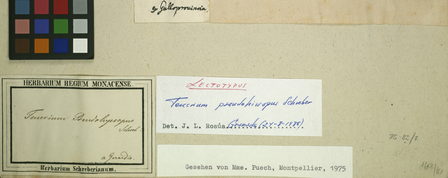 e Galloprovincia
HERBARIUM REGIUM MONACENSE
Teucrium Pseudohyssopus
Schreb.
a Gerardo
Herbarium Schreberianum.
LECTOTYPUS
Teucrium pseudohyssopus Schreber
Det. J. L. Rosúa
Gesehen von Mme. Puech, Montpellier, 1975